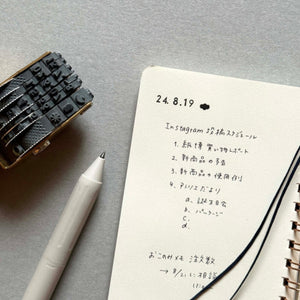 24.8.19
Instagram 投稿スケジュール
1. 紙博 買い物レポート
2. 新商品の予告
3. 新商品の使用例
4. アトリエだより
a. 誕生日会
b. パッケージ
c.
d.
メモ 注文数
→ 8/21に相談